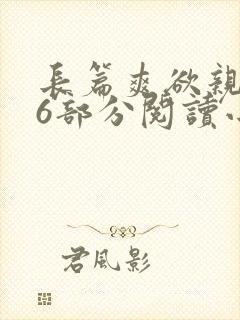 長篇爽欲親
6部分閱讀
君風影